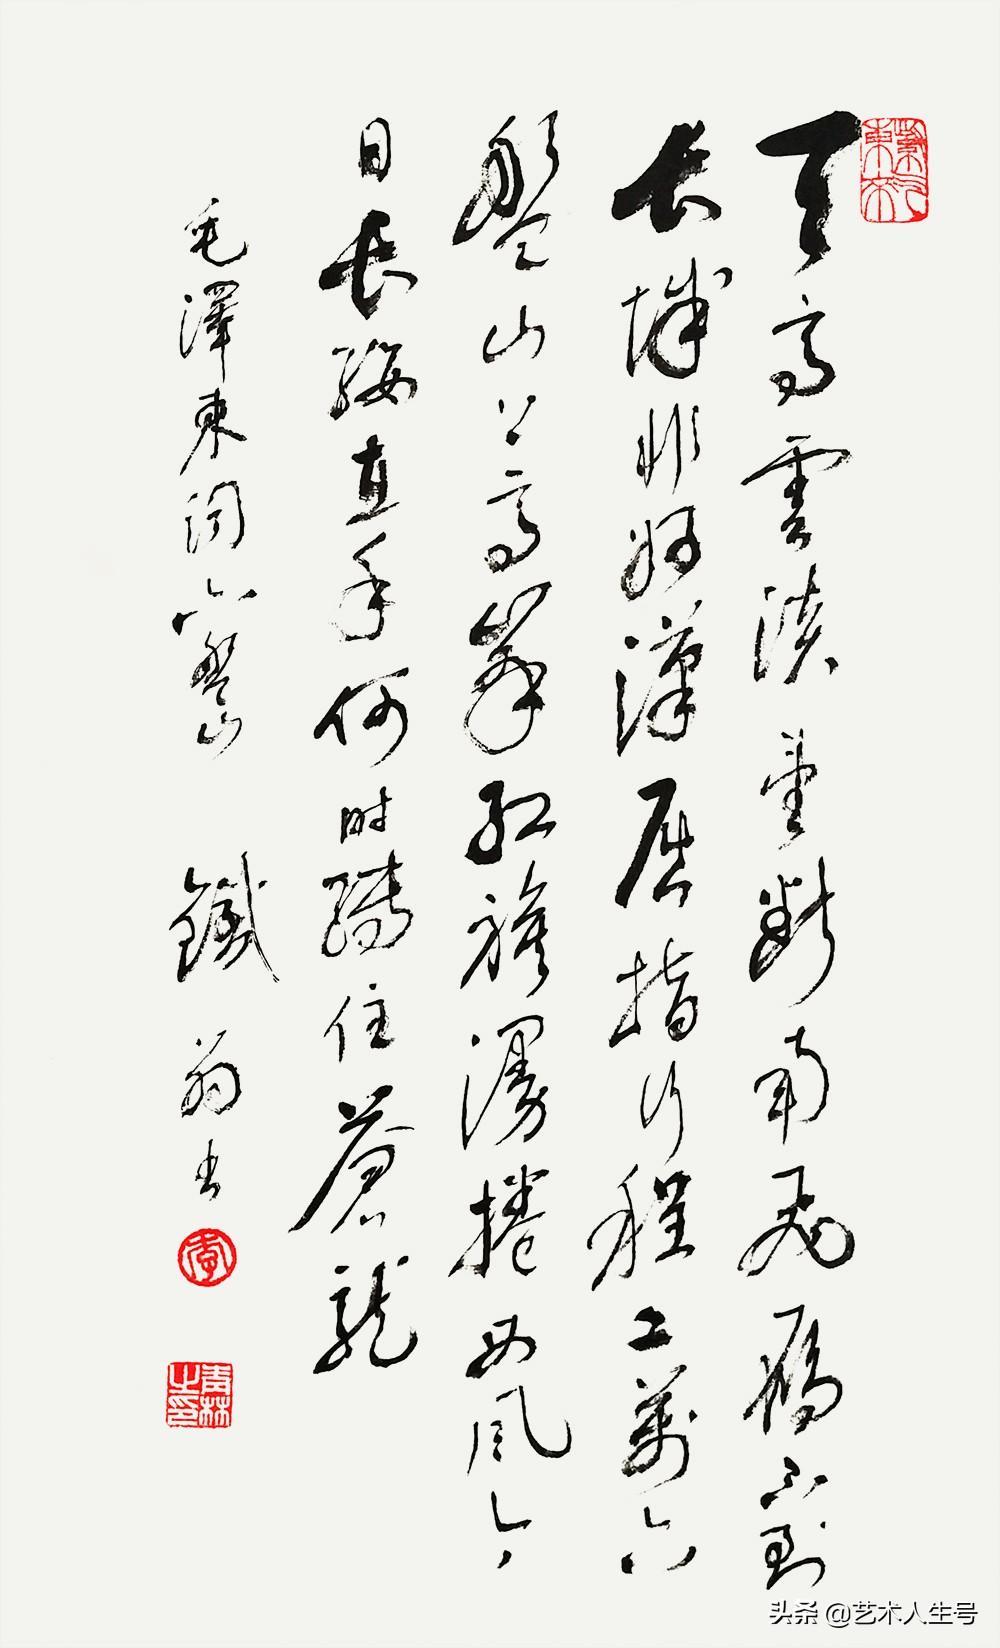 紫气東来
天高雲淡望斷南飛雁不到
长城非好漢屈指行程二萬六
盤山上高峯紅旗漫捲西風今
日长纓在手何时縛住蒼龍
毛澤東詞六盤山 鐵翁书
李
头条 @艺术人生号